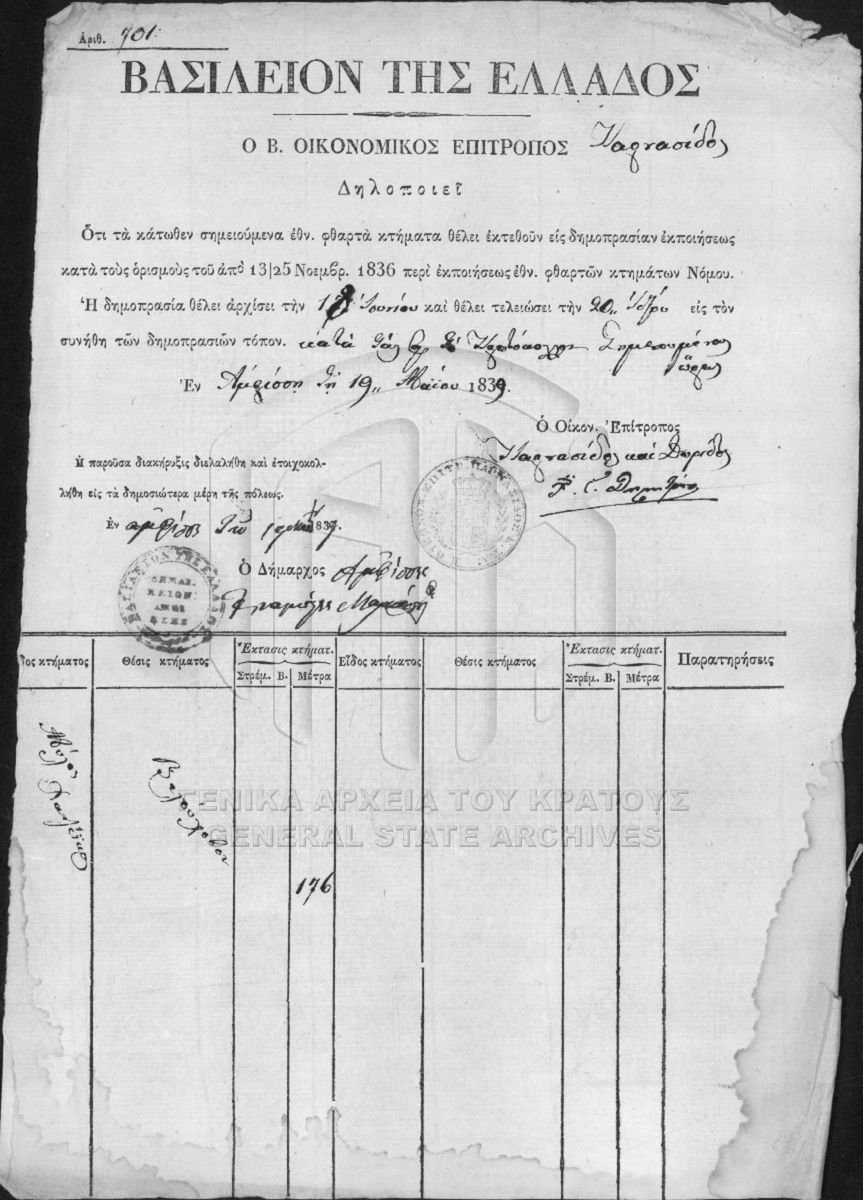 Ἀριθ. 701.
ΒΑΣΙΛΕΙΟΝ ΤΗΣ ΕΛΛΑΔΟΣ
Ο Β. ΟΙΚΟΝΟΜΙΚΟΣ ΕΠΙΤΡΟΠΟΣ Παρνασίδος
Δηλοποιεῖ
Ὅτι τὰ κάτωθεν σημειούμενα ἐθν. φθαρτὰ κτήματα θέλει ἐκτεθοῦν εἰς δημοπρασίαν ἐκποιήσεως
κατὰ τοὺς ὁρισμοὺς τοῦ ἀπὸ 13|25 Νοεμβρ. 1836 περὶ ἐκποιήσεως ἐθν. φθαρτῶν κτημάτων Νόμου.
Ἡ δημοπρασία θέλει ἀρχίσει τὴν Ἰουνίου καὶ θέλει τελειώσει τὴν 20 εἰς τὸν
συνήθη τῶν δημοπρασιῶν τόπον. κατὰ τὰς
ὥρας
Ἐν Ἀμφίσσῃ τῇ 19 Μαΐου 1839.
Ὁ Οἰκον. Ἐπίτροπος
Παρνασίδος καὶ Δωρίδος
Ἡ παροῦσα διακήρυξις διελαλήθη καὶ ἐτοιχοκολ-
λήθη εἰς τὰ δημοσιώτερα μέρη τῆς πόλεως.
Ἐν 183
Ὁ Δήμαρχος
ΒΑΣΙΛΕΙΟΝ ΤΗΣ ΕΛΛΑΔΟΣ
Εἶδος κτήματος Θέσις κτήματος Ἔκτασις κτήματ. Εἶδος κτήματος Θέσις κτήματος Ἔκτασις κτήματ. Παρατηρήσεις
Στρέμ. Β. Μέτρα Στρέμ. Β. Μέτρα
Μύλος
Βελούχοβον
176
ΓΕΝΙΚΑ ΑΡΧΕΙΑ ΤΟΥ ΚΡΑΤΟΥΣ
GENERAL STATE ARCHIVES